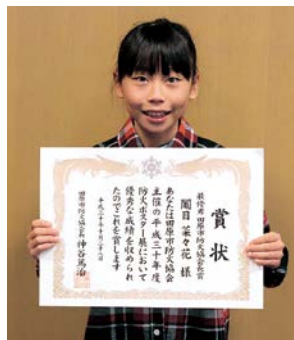 賞状
最優秀 田原市防火協会長賞
闍目 菜々花 様
あなたは田原市防火協会
主催の平成三十年度
防火ポスター展において
優秀な成績を収められ
たのでこれを賞します
平成三十年十月二十八日
田原市防火協会長 神谷篤治